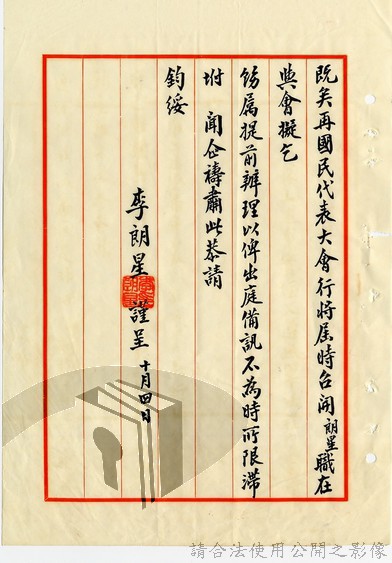 既矣再國民代表大會行將屆時召開朗星職在
與會擬乞
飭屬提前辦理以俾出庭備訊不為時所限滯
坿聞企禱肅此恭請
鈞綏
李朗星謹呈 十月四日
請合法使用公開之影像